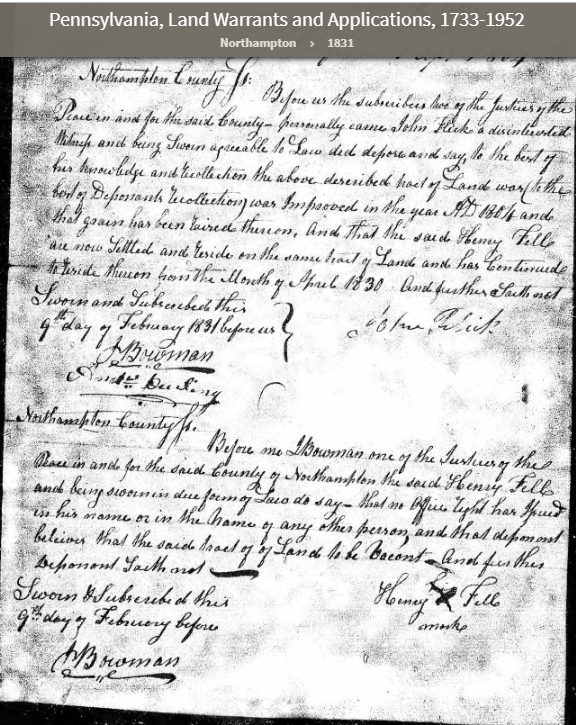 Pennsylvania, Land Warrants and Applications, 1733-1952
Northampton › 1831
Northampton County Ss:
Before us the subscribers two of the Justices of the
Peace in and for the said County – personally came John Flick a disinterested
Witness and being Sworn agreeable to Law did depose and say, to the best of
his Knowledge and Recollection the above described tract of Land was (to the
best of Deponants Recollection) was Improved in the year AD 1804 and
that grain has been raised thereon. And that the said Henry Fell
are now Settled and reside on the same tract of Land and has Continued
to reside thereon from the Month of April 1830 And further Saith not
Sworn and Subscribed this
9th day of February 1831 before us
John Flick
J Bowman
Northampton County Ss.
Before me J Bowman one of the Justices of the
Peace in and for the said County of Northampton the said Henry Fell
and being sworn in due form of Law do say – that no Office right has Issued
in his name or in the Name of any other person, and that deponant
believes that the said tract of of Land to be Vacant – And further
Deponant Saith not
Sworn & Subscribed this
9th day of February before
Henry X Fell
mark
J Bowman